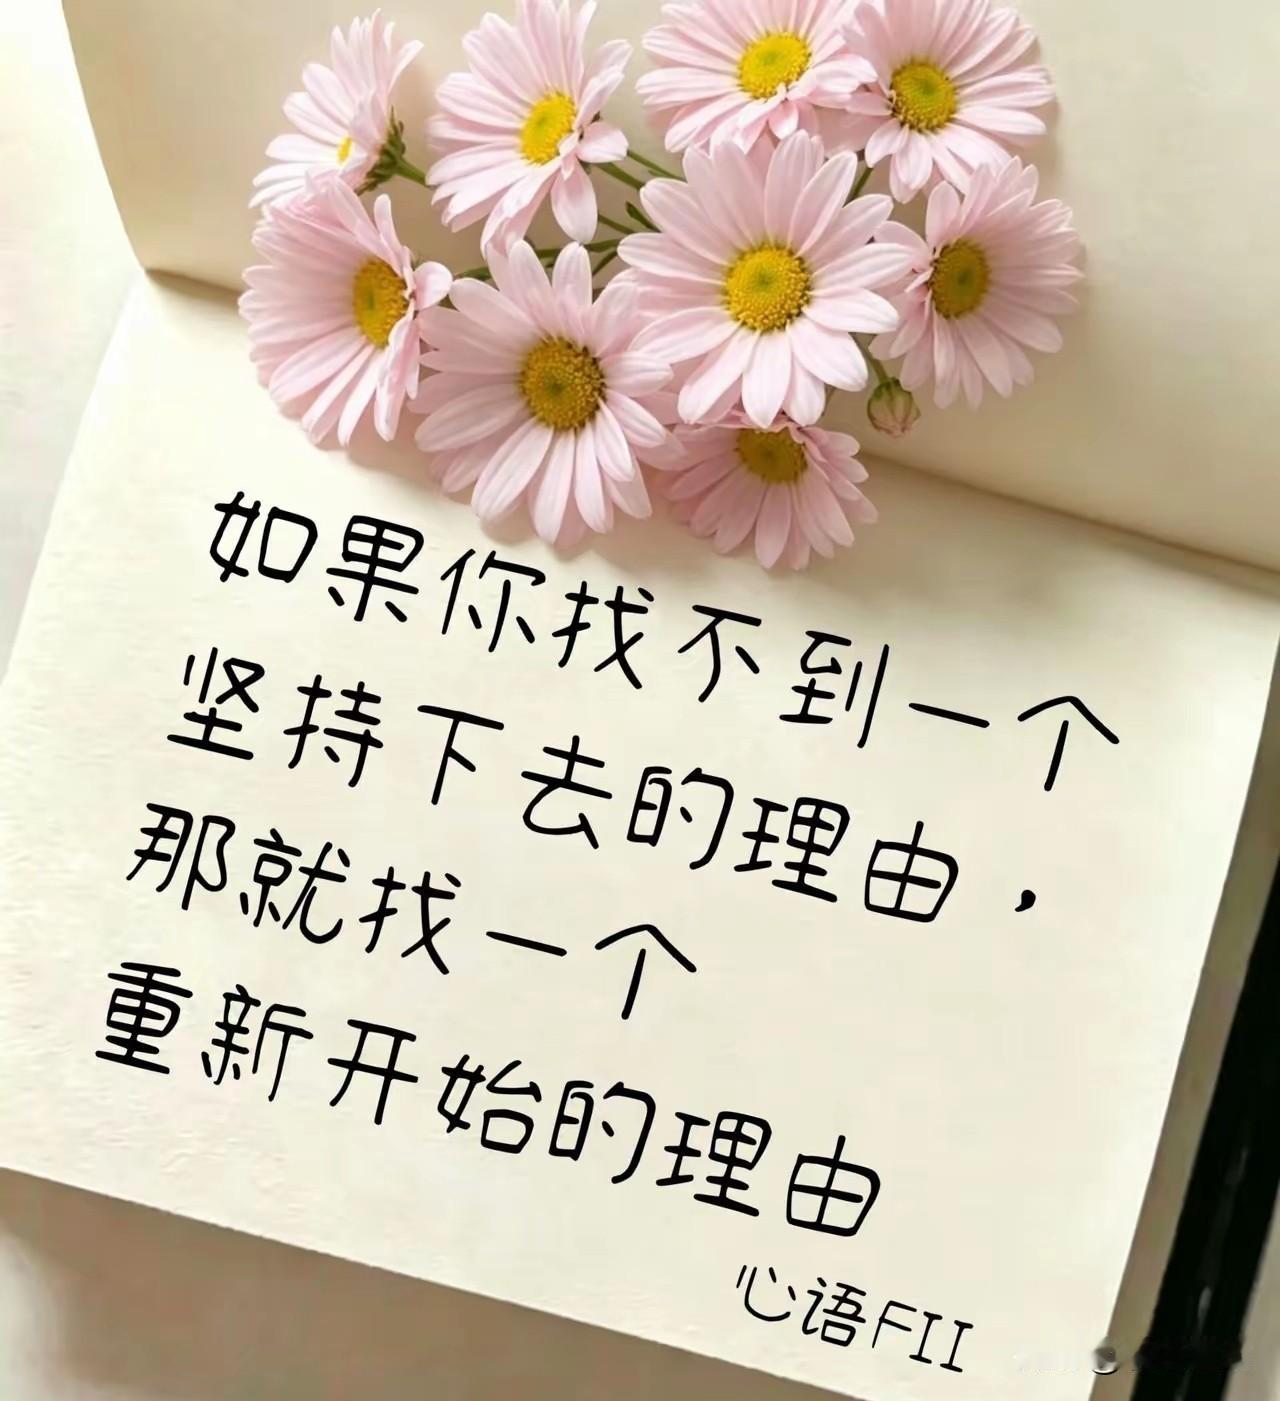 如果你找不到一个
坚持下去的理由，
那就找一个
重新开始的理由
心语FII